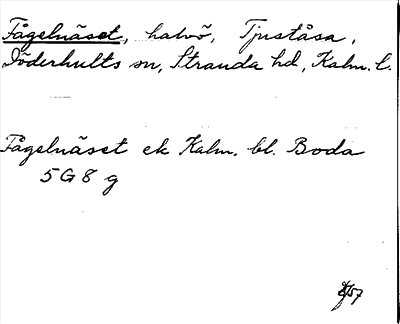 Fågelnäset, halvö, Tjuståsa,
Döderhults sn, Stranda hd, Kalm. l.
Fågelnäset ek Kalm. bl. Boda
5 G 8 g